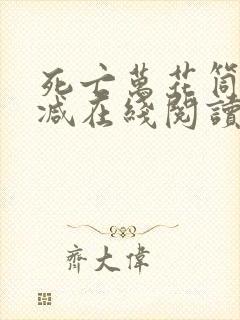 死亡萬花筒
減在綫閱讀
齊大偉